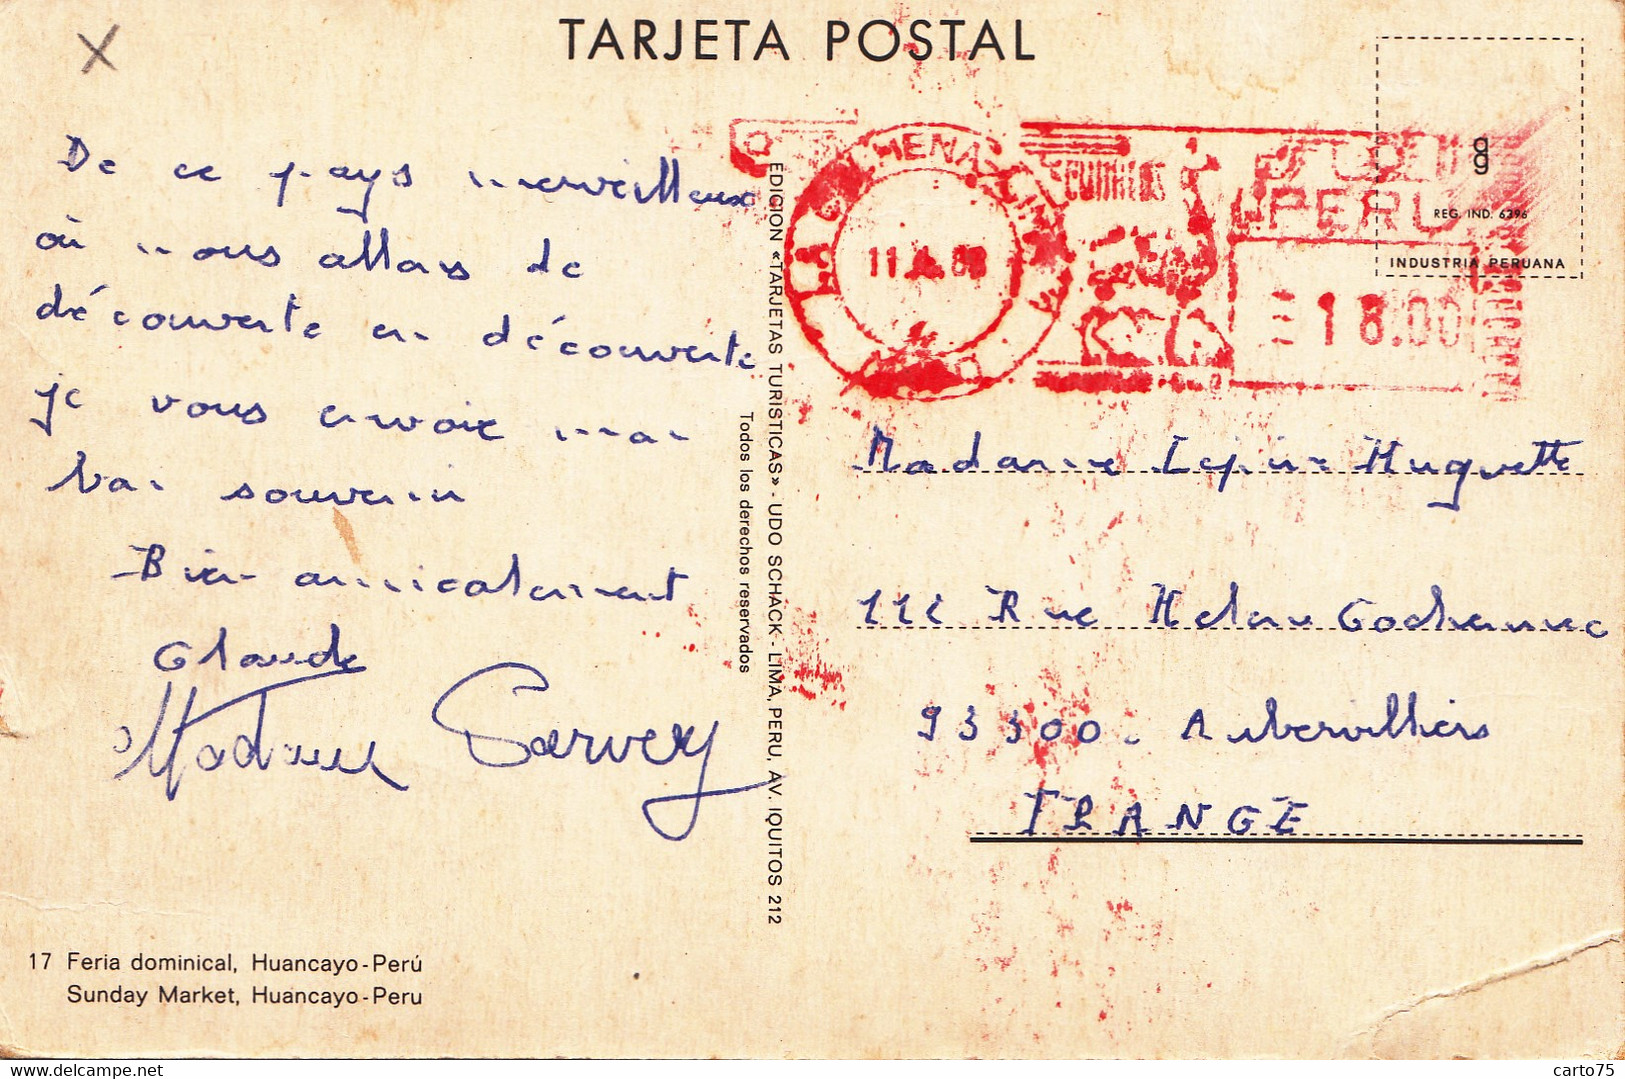 TARJETA POSTAL
X
De ce pays merveilleux
où nous allons de
découverte en découverte
je vous envoie mon
bon souvenir
Bien amicalement
Claude
Madame Garvey
EDICION «TARJETAS TURISTICAS» - UDO SCHACK - LIMA, PERU, AV. IQUITOS 212
Todos los derechos reservados
CORREOS
PERU
11 A 8
18.00
REG. IND. 6396
INDUSTRIA PERUANA
Madame Lepine Huguette
111 Rue Helene Cochennec
93300. Aubervilliers
FRANCE
17 Feria dominical, Huancayo-Perú
Sunday Market, Huancayo-Peru
delcampe.net
carto75